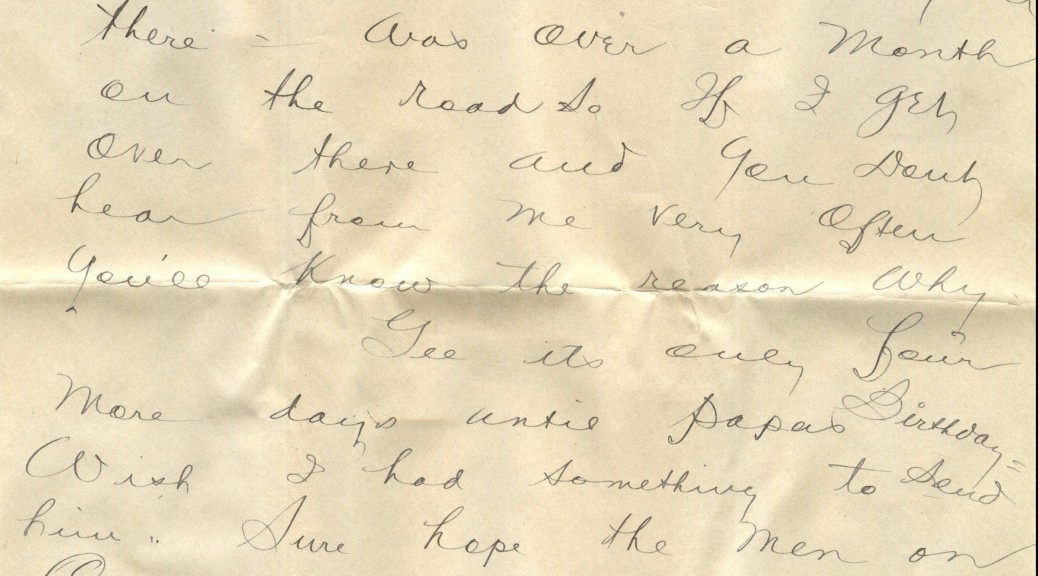 there = was over a Month
on the road so If I get
over there and you Dont
hear from me very often
you'll Know the reason Why.
Gee its only four
More days until papas Birthday =
Wish I had something to Send
him.. Sure hope the Men on